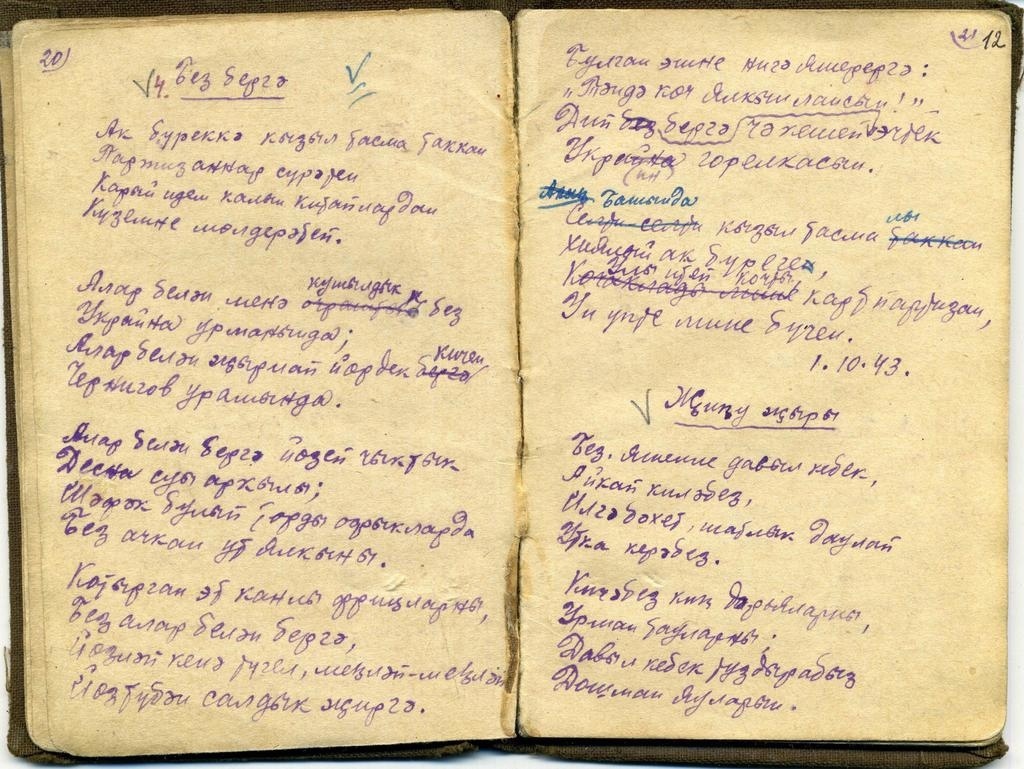 20)
4. Без бергә
Ак бүреккә кызыл тасма таккан
Партизаннар сурәтен
Карый идем калын китаплардан
Күземне мөлдерәтеп.
Алар белән менә кушылдык без
Украйна урманында;
Алар белән җырлап йөрдек бергә кичен
Чернигов урамында.
Алар белән бергә йөзеп чыктык
Десна суы аркылы;
Шәфәкъ булып торды офыкларда
Без ачкан ут ялкыны.
Котырган эт канлы фрицларны,
Без алар белән бергә,
Йөзләп кенә түгел, меңләп-меңләп
Йөзтүбән салдык җиргә.
21
12
Булган эшне нигә яшерергә:
„Тәндә көч ялкынлансын!"
Дип без бергә чәкешеп эчтек
Украйна горелкасын.
(ин)
Аның Башында
Селти-селти кызыл тасма лы таккан
Хәйләр ак бүреге,
Улы итеп кочты карт партизан,
Үп үпте мине бүген.
1.10.43.
Җиңү җыры
Без, яшенле давыл кебек,
Айкап киләбез,
Илгә бәхет, шатлык даулап
Утка керәбез.
Кичәбез киң дәрьяларны,
Урман тауларны.
Давыл кебек туздырабыз
Дошман яуларын.